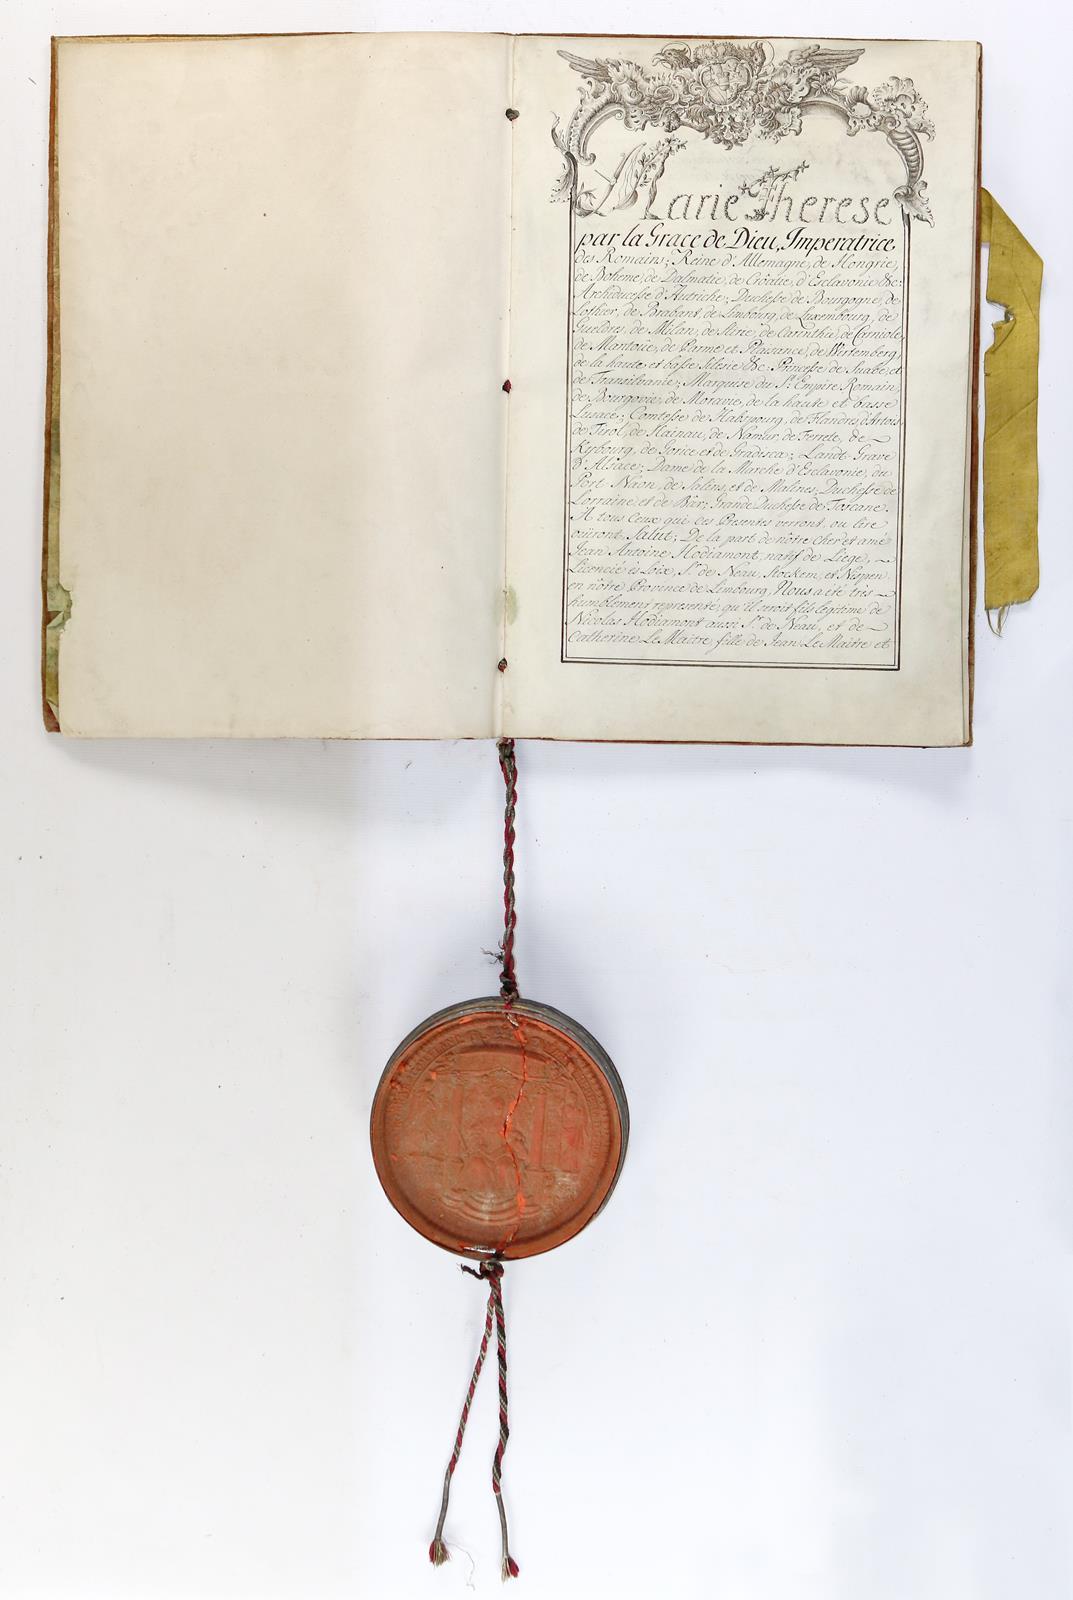 Marie Therese
par la Grace de Dieu, Imperatrice
des Romains; Reine d'Allemagne, de Hongrie,
de Boheme, de Dalmatie, de Croatie, d'Esclavonie &c:
Archiduchesse d'Autriche; Duchesse de Bourgogne, de
Lothier, de Brabant, de Limbourg, de Luxembourg, de
Gueldres, de Milan, de Stirie, de Carinthie, de Carniole,
de Mantoüe, de Parme et Plaisance, de Wirtemberg,
de la haute et basse Silesie &c: Princesse de Suabe, et
de Transilvanie; Marquise du St. Empire Romain,
de Bourgovie, de Moravie, de la haute et basse
Lusace; Comtesse de Habspourg, de Flandres, d'Artois,
de Tirol, de Hainau, de Namur, de Ferrete, de
Kybourg, de Gorice et de Gradisca; Landt-Grave
d'Alsace; Dame de la Marche d'Esclavonie, du
Port Naon, de Salins, et de Malines; Duchesse de
Lorraine et de Bar; Grande Duchesse de Toscane.
A tous ceux qui ces Presentes verront, ou lire
oüiront, Salut; De la part de nôtre cher et amé
Jean Antoine Hodiamont, natif de Liege,
Licencié ès Loix, Sr. de Neau, Stockem, et Nispen
en nôtre Province de Limbourg, Nous a été très
humblement representé, qu'il seroit fils legitime de
Nicolas Hodiamont aussi Sr. de Neau, et de
Catherine Le Maitre, fille de Jean Le Maitre et